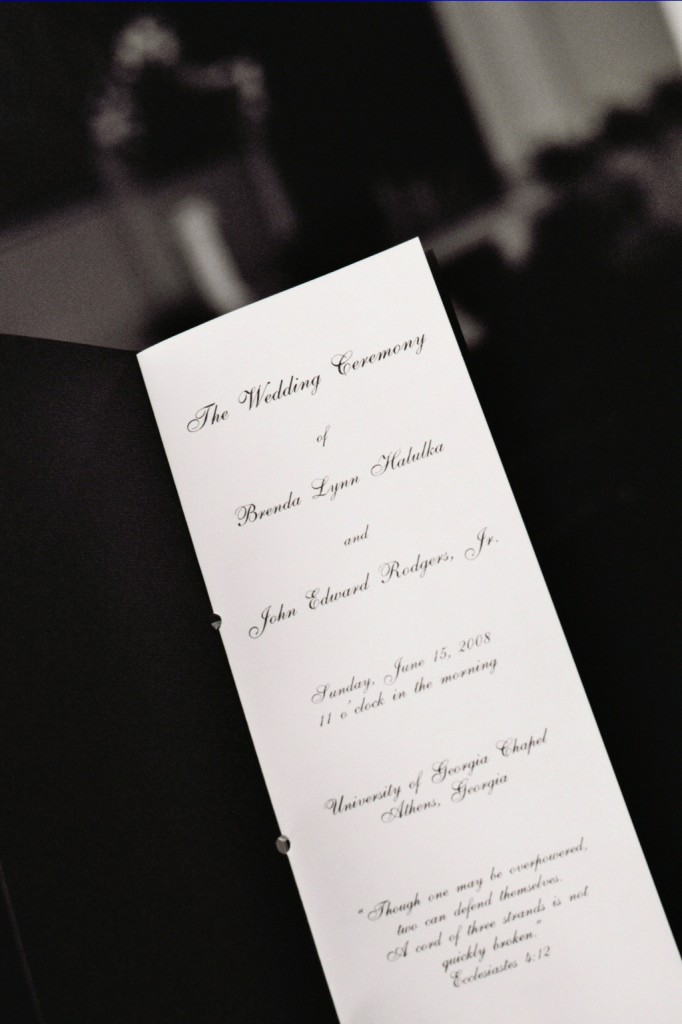 The Wedding Ceremony
of
Brenda Lynn Halulka
and
John Edward Rodgers, Jr.
Sunday, June 15, 2008
11 o'clock in the morning
University of Georgia Chapel
Athens, Georgia
"Though one may be overpowered,
two can defend themselves.
A cord of three strands is not
quickly broken."
Ecclesiastes 4:12